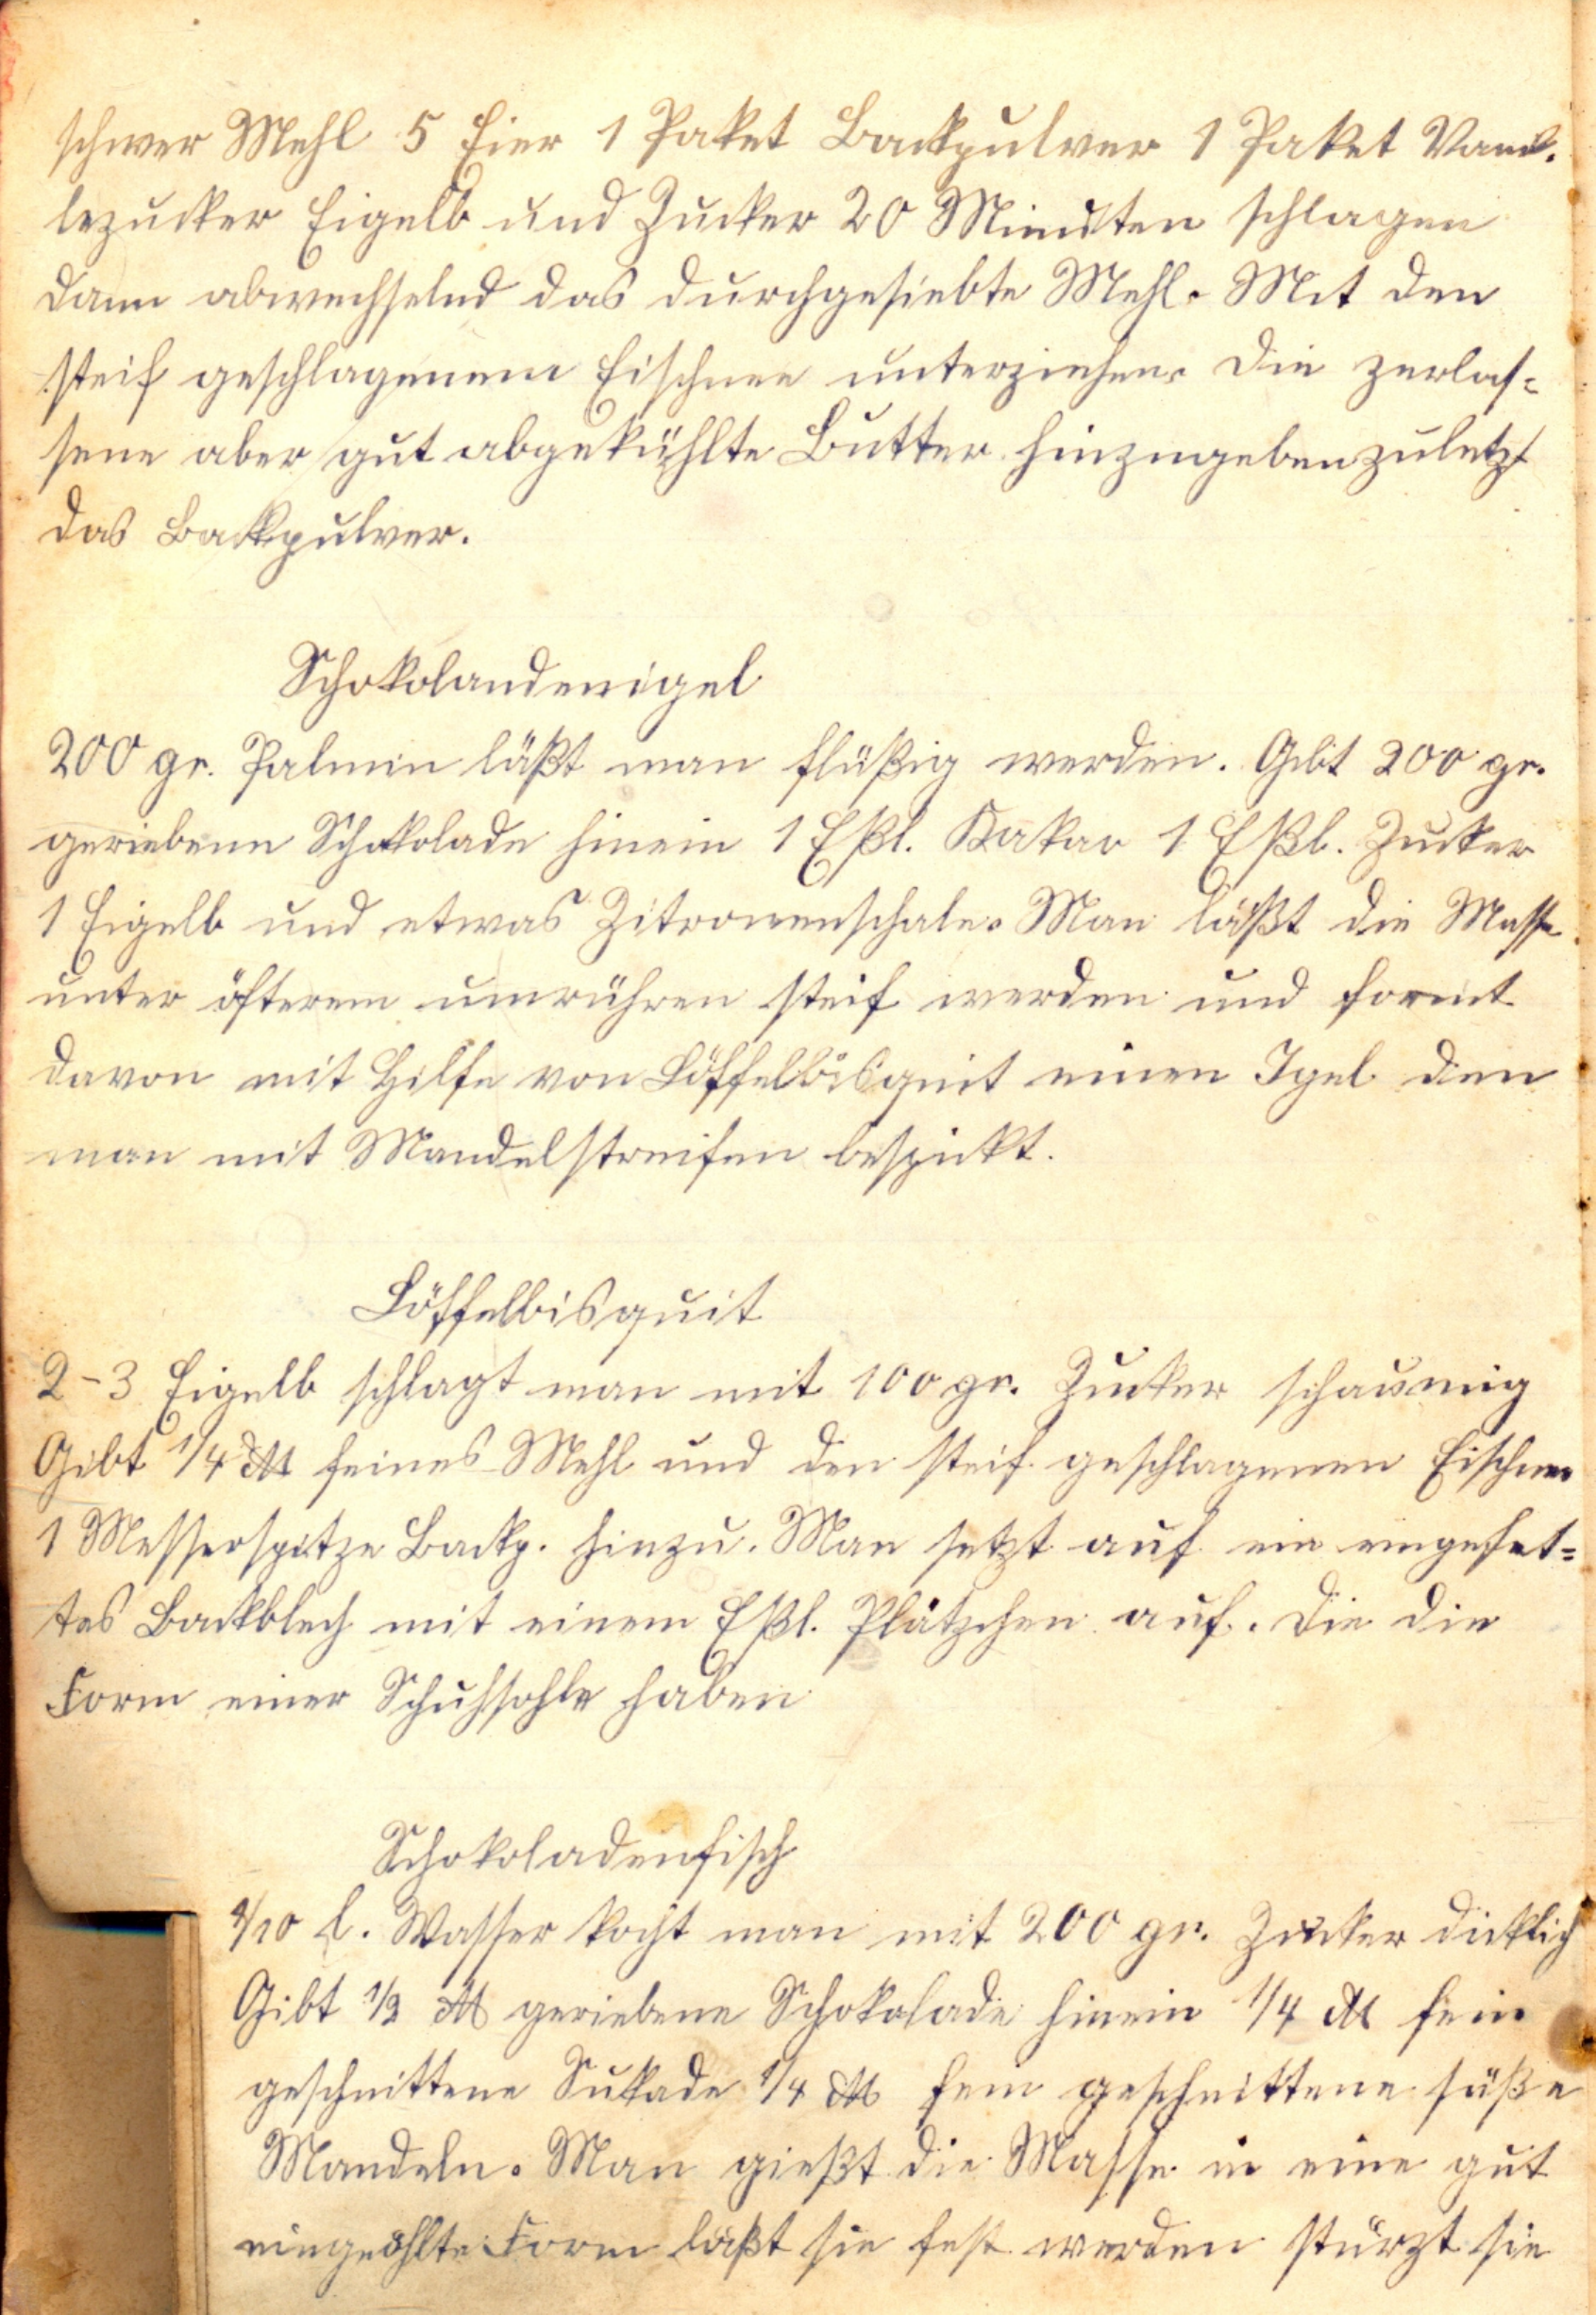 schwer Mehl 5 Eier 1 Paket Backpulver 1 Paket Vanil.
lezucker Eigelb und Zucker 20 Minuten schlagen
dann abwechselnd das durchgesiebte Mehl. Mit den
steif geschlagenem Eischnee unterziehen. Die zerlas=
sene aber gut abgekühlte Butter hinzugeben zuletzt
das Backpulver.
Schokolandenigel
200 gr. Palmin läßt man flüßig werden. Gibt 200 gr.
geriebene Schokolade hinein 1 Eßl. Kakao 1 Eßl. Zucker
1 Eigelb und etwas Zitronenschale. Man läßt die Masse
unter öfterem umrühren steif werden und formt
davon mit Hilfe von Löffelbisquit einen Igel den
man mit Mandelstreifen bespickt.
Löffelbisquit
2-3 Eigelb schlagt man mit 100 gr. Zucker schaumig
Gibt 1/4 ℔ feines Mehl und den steif geschlagenen Eischnee
1 Messerspitze Backp. hinzu. Man setzt auf ein eingefet=
tes Backblech mit einem Eßl. Plätzchen auf. Die die
Form einer Schuhsohle haben
Schokoladenfisch
/10 l. Wasser kocht man mit 200 gr. Zucker dicklich
Gibt 1/2 ℔ geriebene Schokolade hinein 1/4 ℔ fein
geschnittene Sukade 1/4 ℔ fein geschnittene süße
Mandeln. Man gießt die Masse in eine gut
eingeöhlte Form läßt sie fest werden stürzt sie